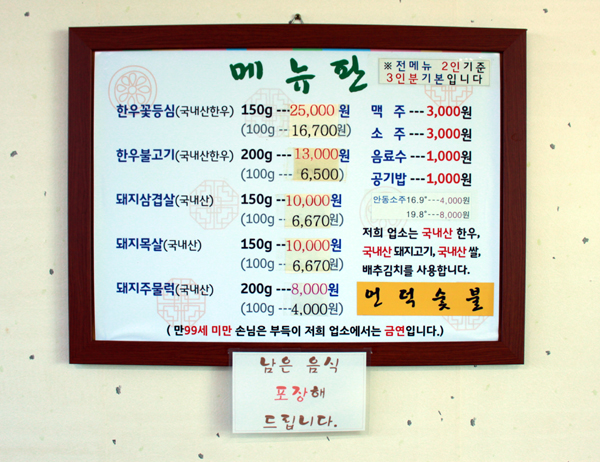 메뉴판
※ 전메뉴 2인기준
3인분기본입니다
한우꽃등심(국내산한우) 150g ---25,000원
(100g -- 16,700원)
한우불고기(국내산한우) 200g ---13,000원
(100g -- 6,500)
돼지삼겹살(국내산) 150g ---10,000원
(100g -- 6,670원)
돼지목살(국내산) 150g ---10,000원
(100g -- 6,670원)
돼지주물럭(국내산) 200g ---8,000원
(100g ---4,000원)
맥 주 ---3,000원
소 주 ---3,000원
음료수 ---1,000원
공기밥 ---1,000원
안동소주16.9°---4,000원
19.8°---8,000원
저희 업소는 국내산 한우,
국내산 돼지고기, 국내산 쌀,
배추김치를 사용합니다.
언덕숯불
( 만99세 미만 손님은 부득이 저희 업소에서는 금연입니다.)
남은 음식
포장해
드립니다.